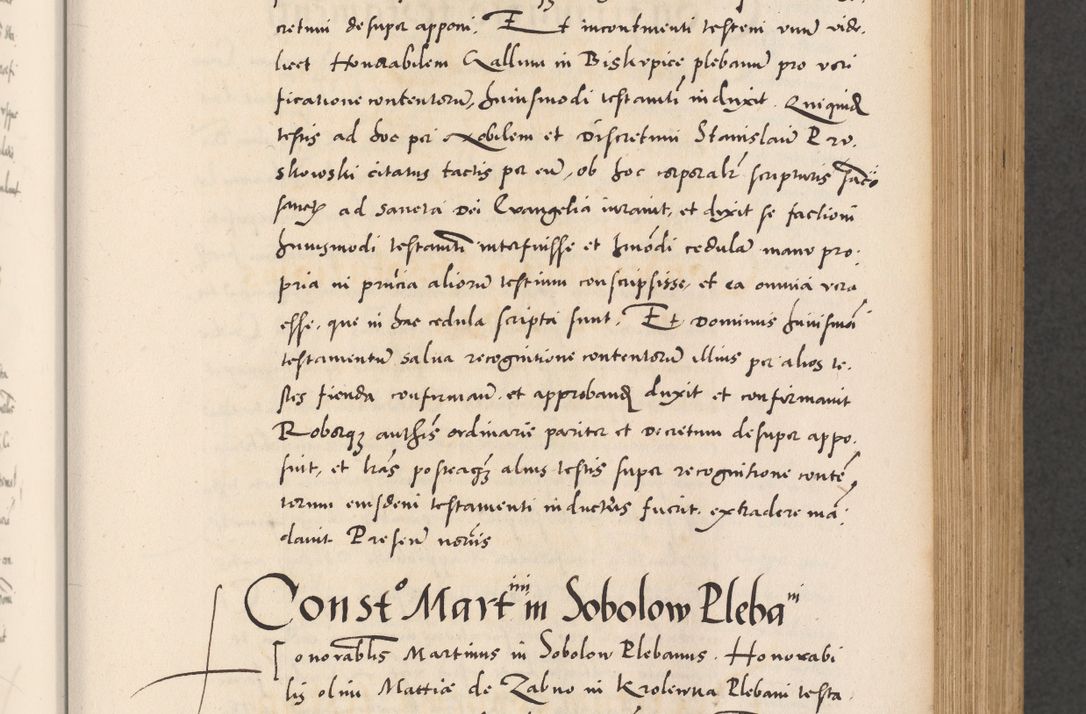 cretum desuper apponi. Et incontinenti testem unum vide.
licet Honorabilem Gallum in Biskupice plebanum pro veri
ficatione contentorum huiusmodi testamenti induxit. Quiquid
testis ad hoc per Nobilem et Discretum Stanislaum Pro.
skowski citatus tactis per eum, ob hoc corporalr scripturis sacro
sanctis ad sancta Dei Evangelia iuravit, et dixit se factioni
huiusmodi testamti interfuisse et hmodi cedulam manu pro.
pria in pñcia aliorum testium conscripsisse, et ea omnia vera
esse, que in hac cedula scripta sunt. Et Dominus huiusmoi
testamentum salva recognitione contentorum illius per alios te.
stes fienda confirmanũ et approbanđ duxit et confirmavit
Roborqз authtis ordinarie pariter et Decretum desuper appo.
suit, et lrãs posteaqз alius testis super recognitione conten
torum eiusdem testamenti inductus fuerit, extradere mã.
davit Presen nõriis
Const° Martini in Sobolow Pleba ni
Honorablis Martinus in Sobolow Plebanus. Honorabi
lis olim Mattiæ de Zabno in Krolewna Plebani testa.